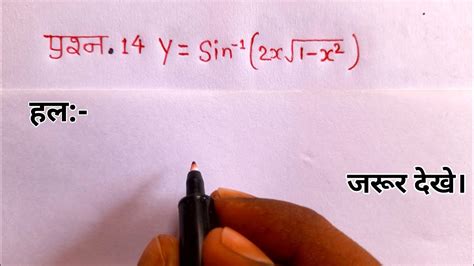 प्रश्न. 14 Y = Sin⁻¹(2x√1-x²)
हल:-
जरूर देखे।